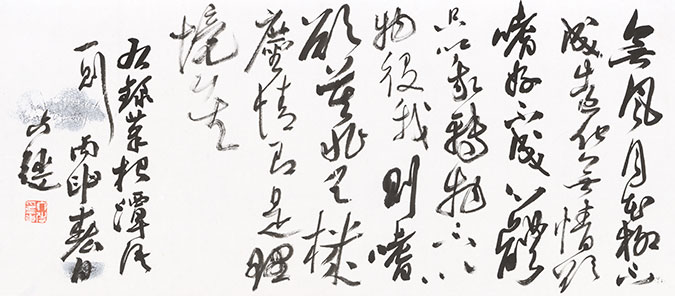 無風月花柳不
成造化無情欲
嗜好不成心體
只以我轉物不以
物役我則嗜
欲莫非天機
塵情即是理
境矣
右錄菜根潭
一則 丙申春日